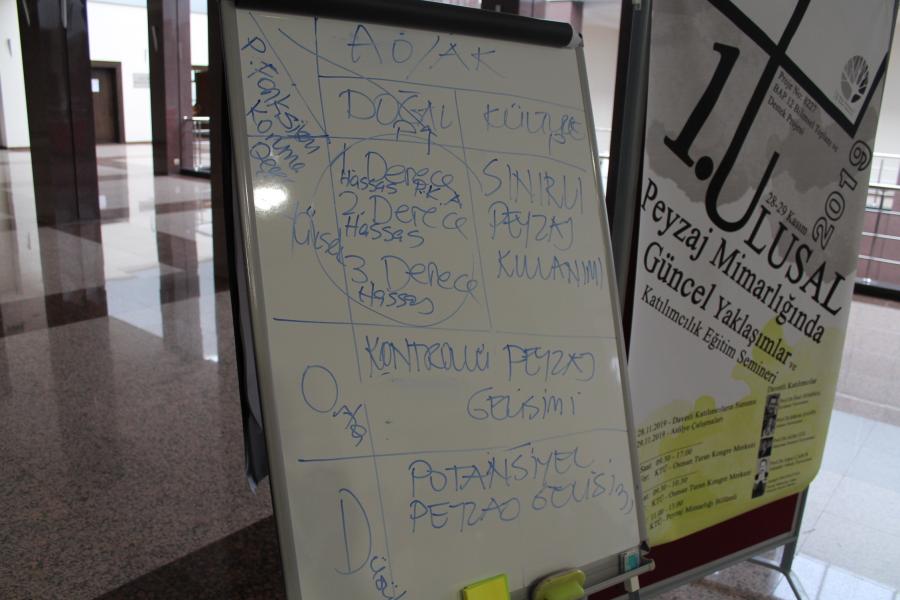 AÖ/AK
P. Fonksiyon
Koruma
Değ
DOĞAL
KÜLTÜREL
Yüksek
1. Derece
Hassas
2. Derece
Hassas
3. Derece
Hassas
SINIRLI
PEYZAJ
KULLANIMI
Orta
KONTROLLÜ PEYZAJ
GELİSİMİ
Düşük
POTANSİYEL
PEYZAJ
Proje No: 8227
BAP 12 Bölümsel Toplantı ve
Destek Projesi
1. ULUSAL
28-29 Kasım
2019
Peyzaj Mimarlığında
Güncel Yaklaşımlar ve
Katılımcılık Eğitim Semineri
Davetli Katılımcılar
28.11.2019 - Davetli Katılımcıların Sunumu
29.11.2019 - Atölye Çalışmaları
Saat: 09.30 - 17.00
KTÜ - Osman Turan Kongre Merkezi
09.30 - 10.30
KTÜ - Osman Turan Kongre Merkezi
KTÜ - Peyzaj Mimarlığı Bölümü